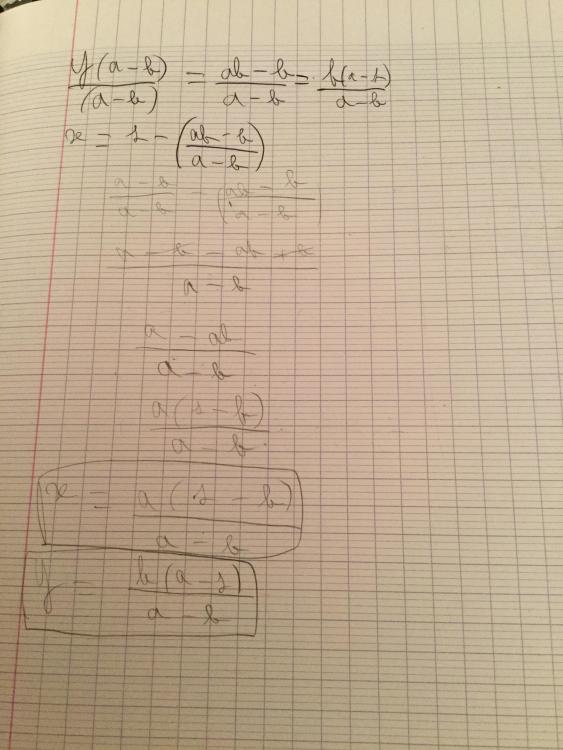 y(a-b)/(a-b) = ab-b/a-b = b(a-1)/a-b
x = 1 - (ab-b/a-b)
a-b/a-b - (ab-b/a-b)
a-b-ab+b/a-b
a-ab/a-b
a(1-b)/a-b
x = a(1-b)/a-b
y = b(a-1)/a-b